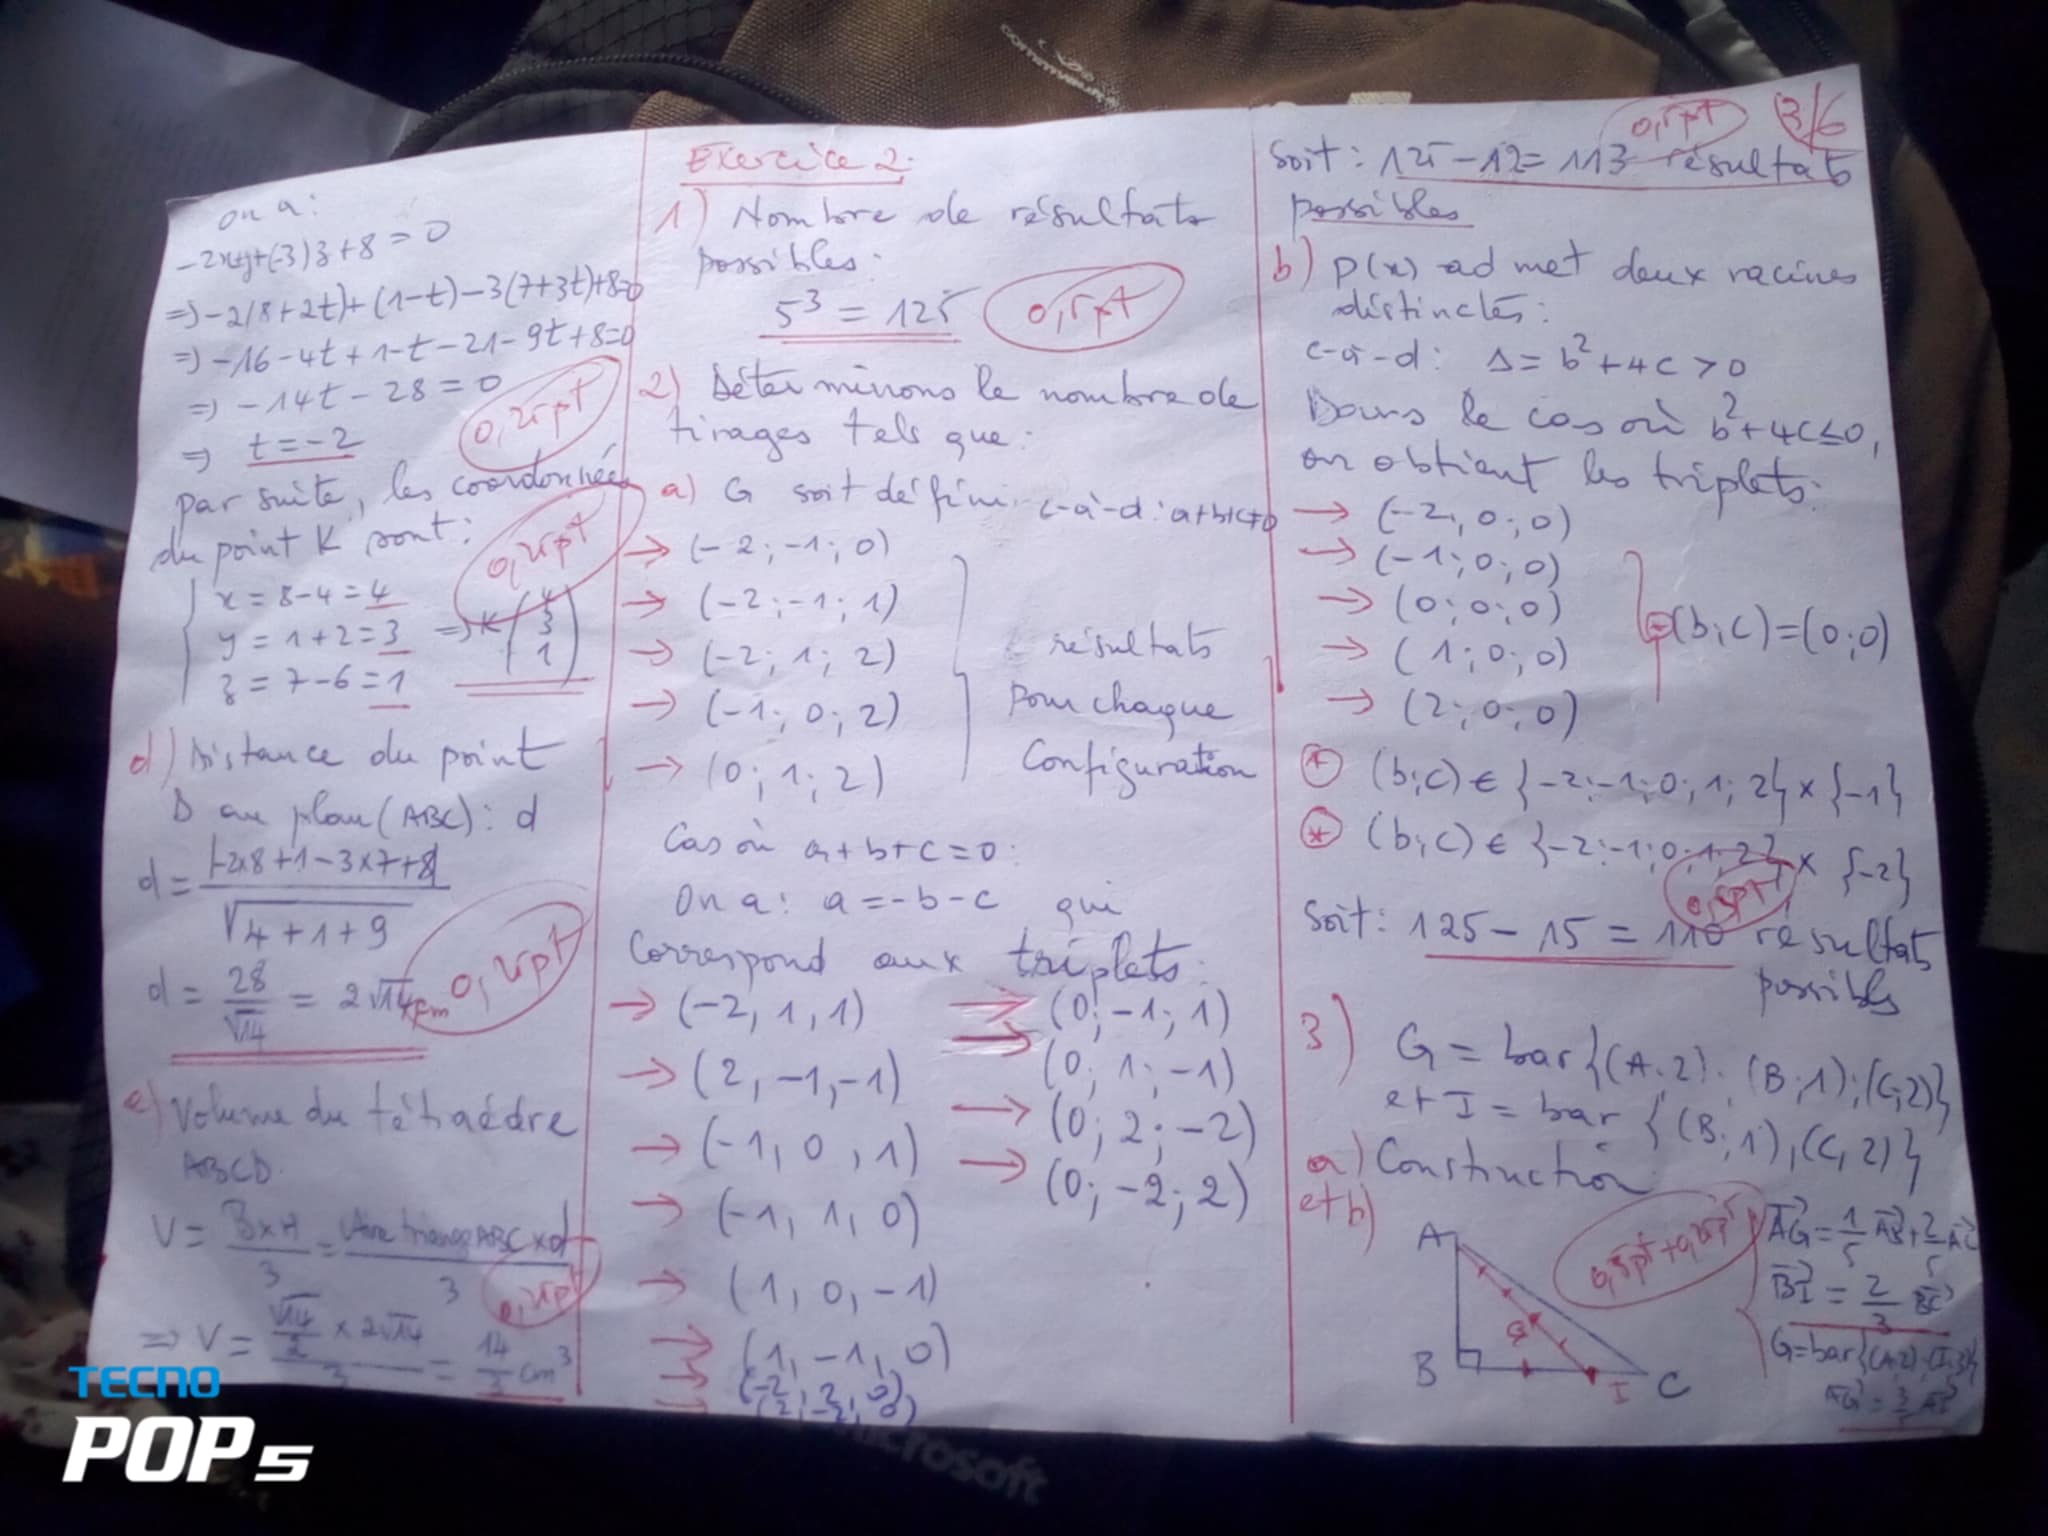 on a:
-2x+y+(-3)z+8 = 0
=> -2(8+2t)+(1-t)-3(7+3t)+8=0
=> -16-4t+1-t-21-9t+8=0
=> -14t-28=0
0,25pt
=> t=-2
par suite, les coordonnées
du point K sont:
0,25pt
x = 8-4 = 4
y = 1+2 = 3 => K (4 3 1)
z = 7-6 = 1
d) Distance du point
D au plan (ABC): d
d = |-2x8+1-3x7+8| / √4+1+9
d = 28/√14 = 2√14 cm 0,25pt
e) Volume du tétraèdre
ABCD.
V = BxH/3 = Aire triangle ABC x d/3
0,25pt
=> V = √14/2 x 2√14 / 3 = 14/3 cm³
Exercice 2:
1) Nombre de résultats
possibles:
5³ = 125 0,5pt
2) Déterminons le nombre de
tirages tels que:
a) G soit défini c-à-d: a+b+c≠0
→ (-2; -1; 0)
→ (-2; -1; 1)
→ (-2; 1; 2)
→ (-1; 0; 2)
→ (0; 1; 2)
résultats
pour chaque
Configuration
Cas où a+b+c=0:
On a: a=-b-c qui
correspond aux triplets:
→ (-2, 1, 1)
→ (2, -1, -1)
→ (-1, 0, 1)
→ (-1, 1, 0)
→ (1, 0, -1)
→ (1, -1, 0)
→ (-2; 2; 0)
→ (2; -2; 0)
→ (0; -1; 1)
→ (0; 1; -1)
→ (0; 2; -2)
→ (0; -2; 2)
0,5pt 3/6
Soit: 125-12=113 résultats
possibles
b) P(x) admet deux racines
distinctes:
c-à-d: Δ = b²+4c > 0
Dans le cas où b²+4c≤0,
on obtient les triplets:
→ (-2; 0; 0)
→ (-1; 0; 0)
→ (0; 0; 0)
→ (1; 0; 0)
→ (2; 0; 0)
* (b;c)=(0;0)
* (b;c) ∈ {-2;-1;0;1;2} x {-1}
* (b;c) ∈ {-2;-1;0;1;2} x {-2}
0,5pt
Soit: 125-15 = 110 résultats
possibles
3) G = bar{(A,2); (B;1);(C;2)}
et I = bar {(B;1),(C,2)}
a) Construction
et b)
0,5pt+0,25pt
A
B
C
G
I
AG = 1/5 AB + 2/5 AC
BI = 2/3 BC
G=bar{(A,2);(I;3)}
AG = 3/5 AI
TECNO
POP 5
Microsoft